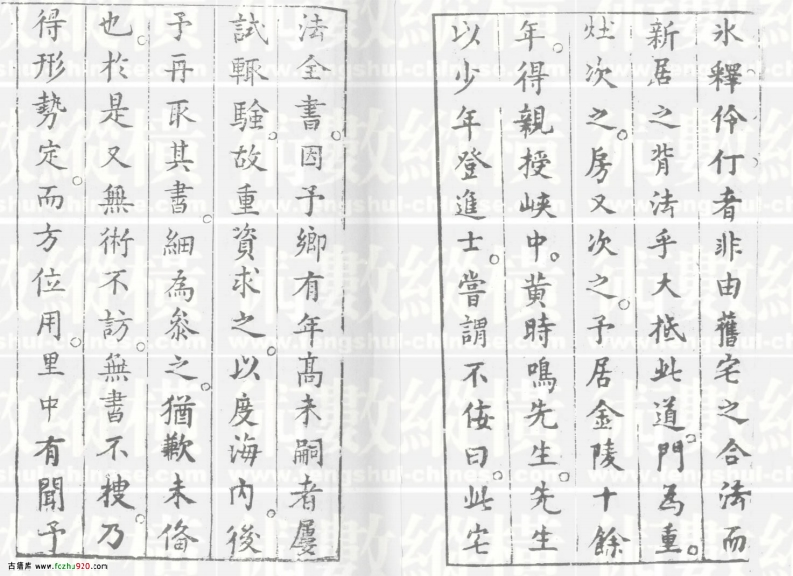 氷釋伶仃者非由舊宅之合法而
新居之背法乎大抵此道門為重。
灶次之。房又次之。予居金陵十餘
年。得親授峽中。黄時鳴先生。先生
以少年登進士。嘗謂不佞曰。此宅
法全書。因予鄉有年髙未嗣者屡
試輒驗。故重資求之。以度海內。後
予再取其書。細為叅之。猶歉未備
也。於是又無術不訪。無書不搜。乃
得形勢定。而方位用。里中有聞予
古籍库 www.fczhu920.com